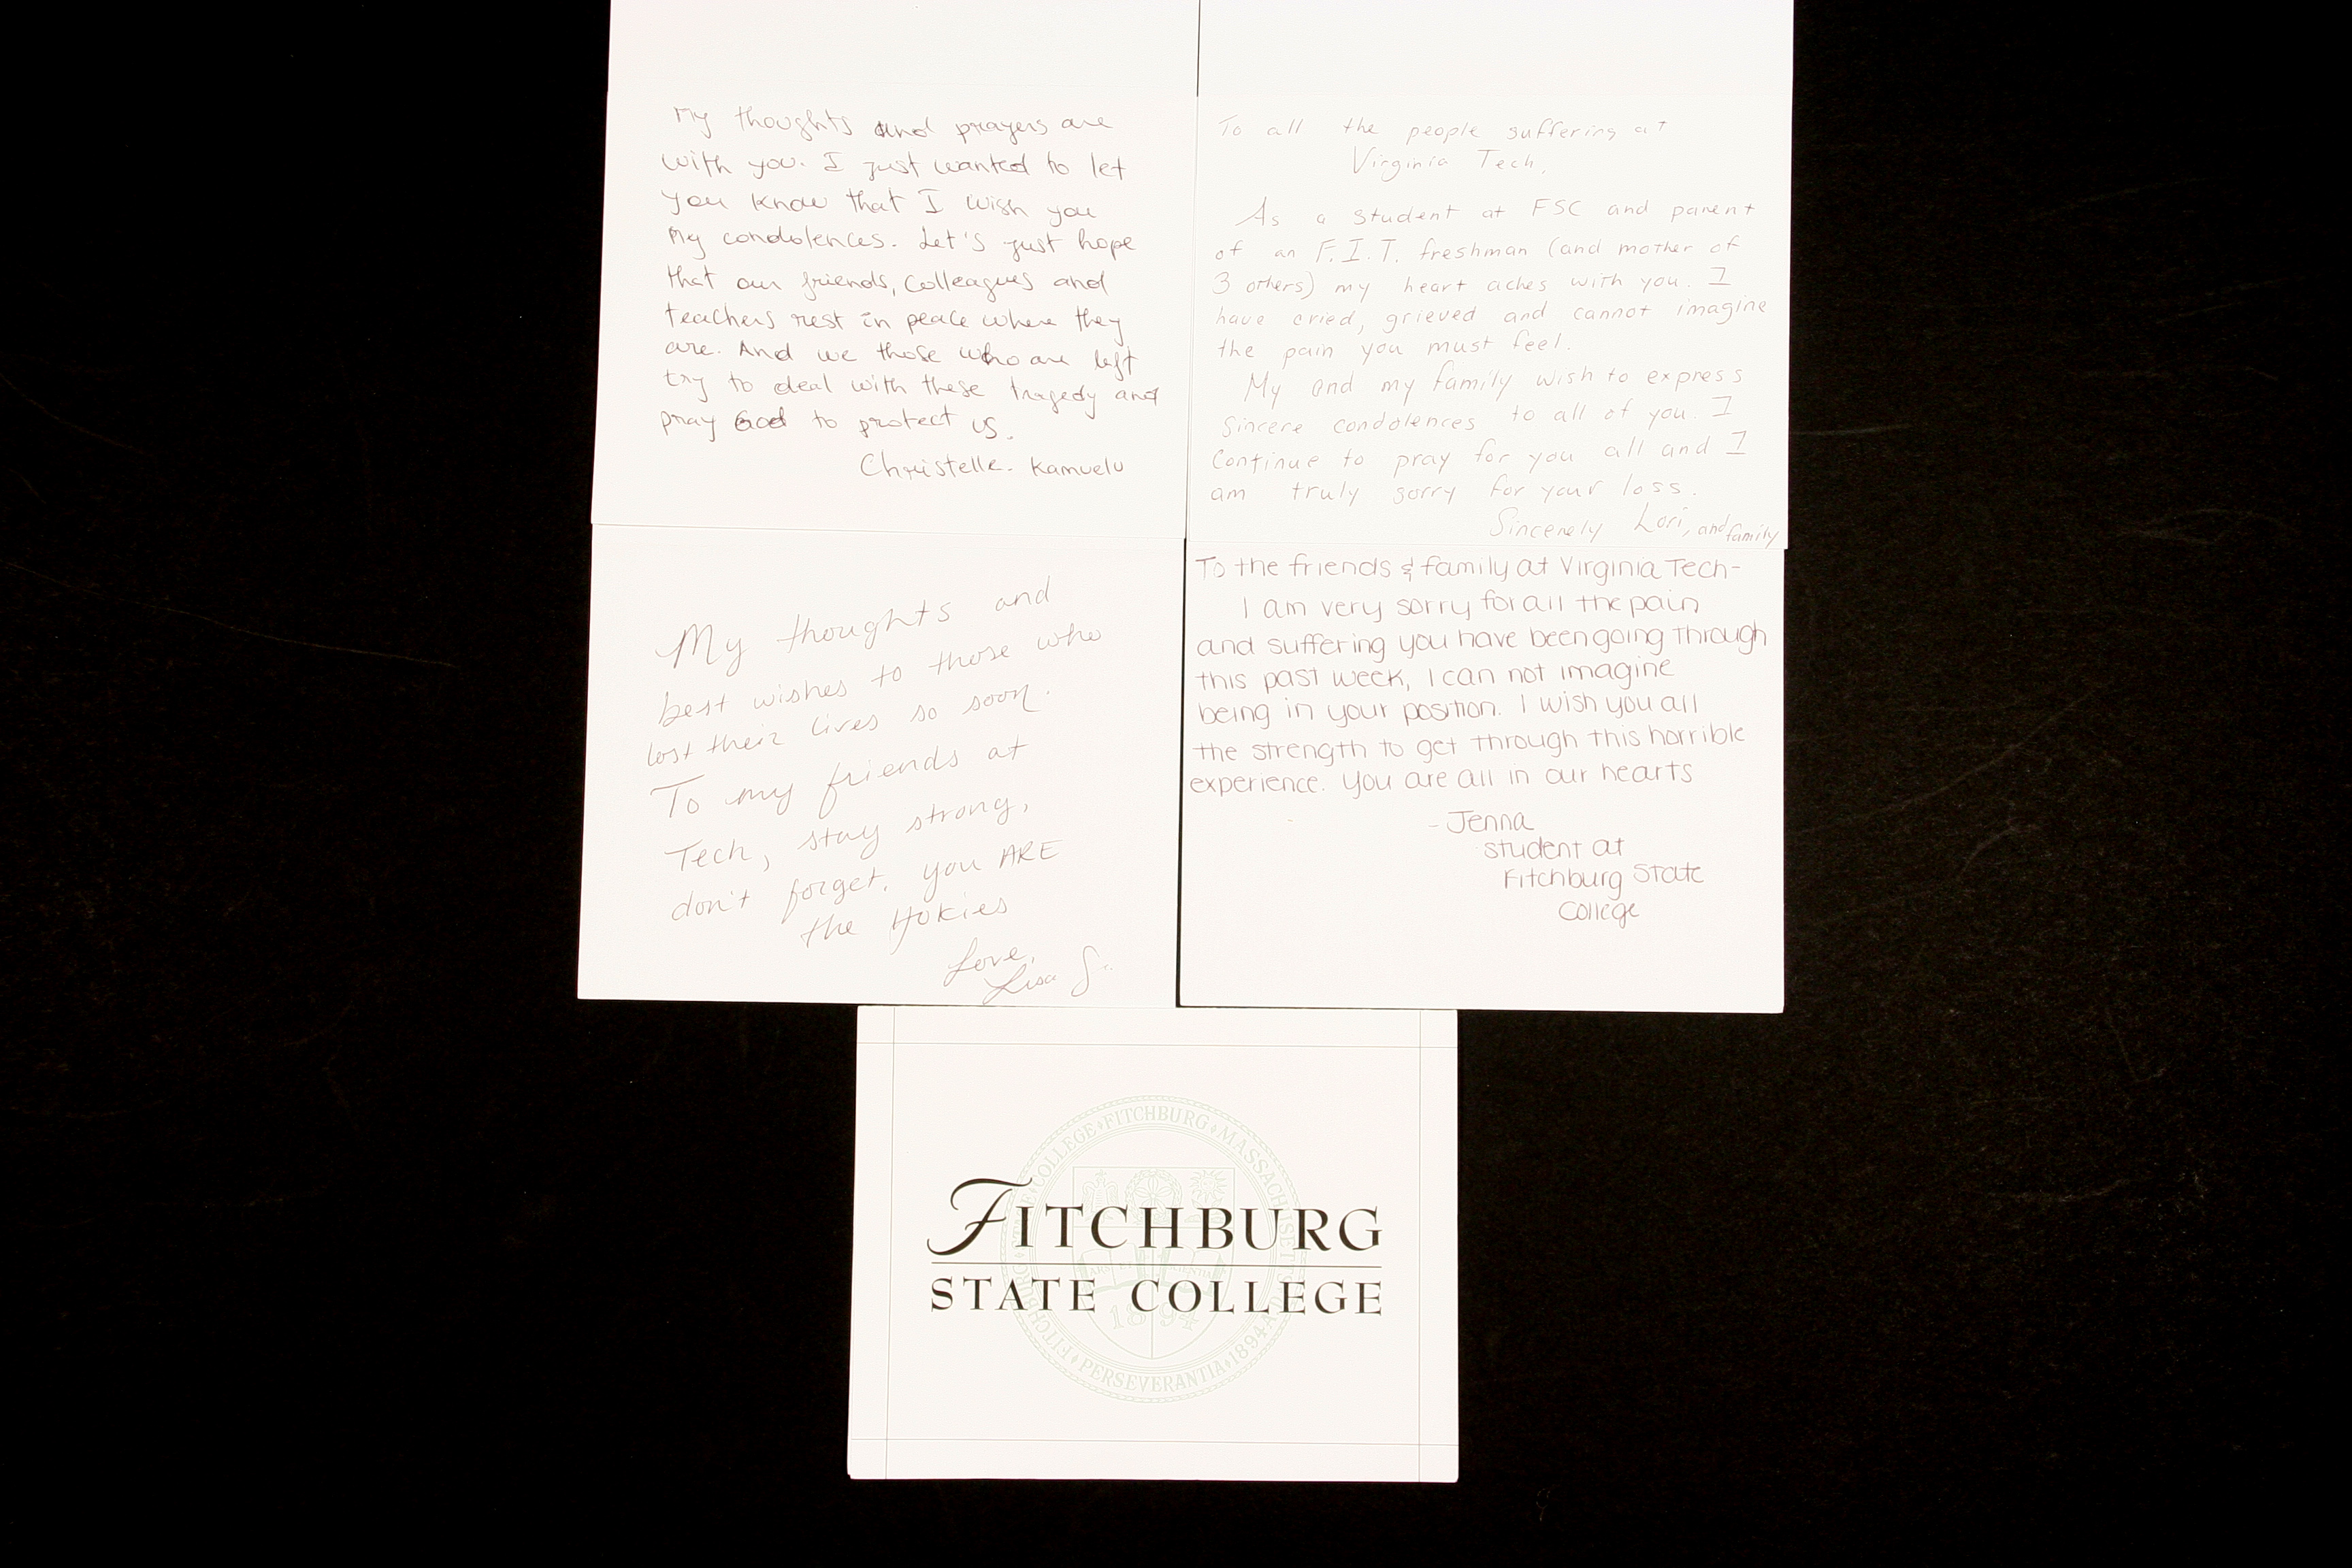 My thoughts and prayers are
with you. I just wanted to let
you know that I wish you
my condolences. Let's just hope
that our friends, colleagues and
teachers rest in peace where they
are. And we those who are left
try to deal with these tragedy and
pray God to protect us.
Christelle. Kamuelu
To all the people suffering at
Virginia Tech,
As a student at FSC and parent
of an F.I.T. freshman (and mother of
3 others) my heart aches with you. I
have cried, grieved and cannot imagine
the pain you must feel.
My and my family wish to express
sincere condolences to all of you. I
continue to pray for you all and I
am truly sorry for your loss.
Sincerely Lori, and family
My thoughts and
best wishes to those who
lost their lives so soon.
To my friends at
Tech, stay strong,
don't forget, you ARE
the Hokies
Love,
Lisa S.
To the friends & family at Virginia Tech-
I am very sorry for all the pain
and suffering you have been going through
this past week, I can not imagine
being in your position. I wish you all
the strength to get through this horrible
experience. You are all in our hearts
- Jenna
student at
Fitchburg State
College
FITCHBURG
STATE COLLEGE
FITCHBURG STATE COLLEGE • FITCHBURG • MASSACHUSETTS • 1894 • PERSEVERANTIA • 1894
1894